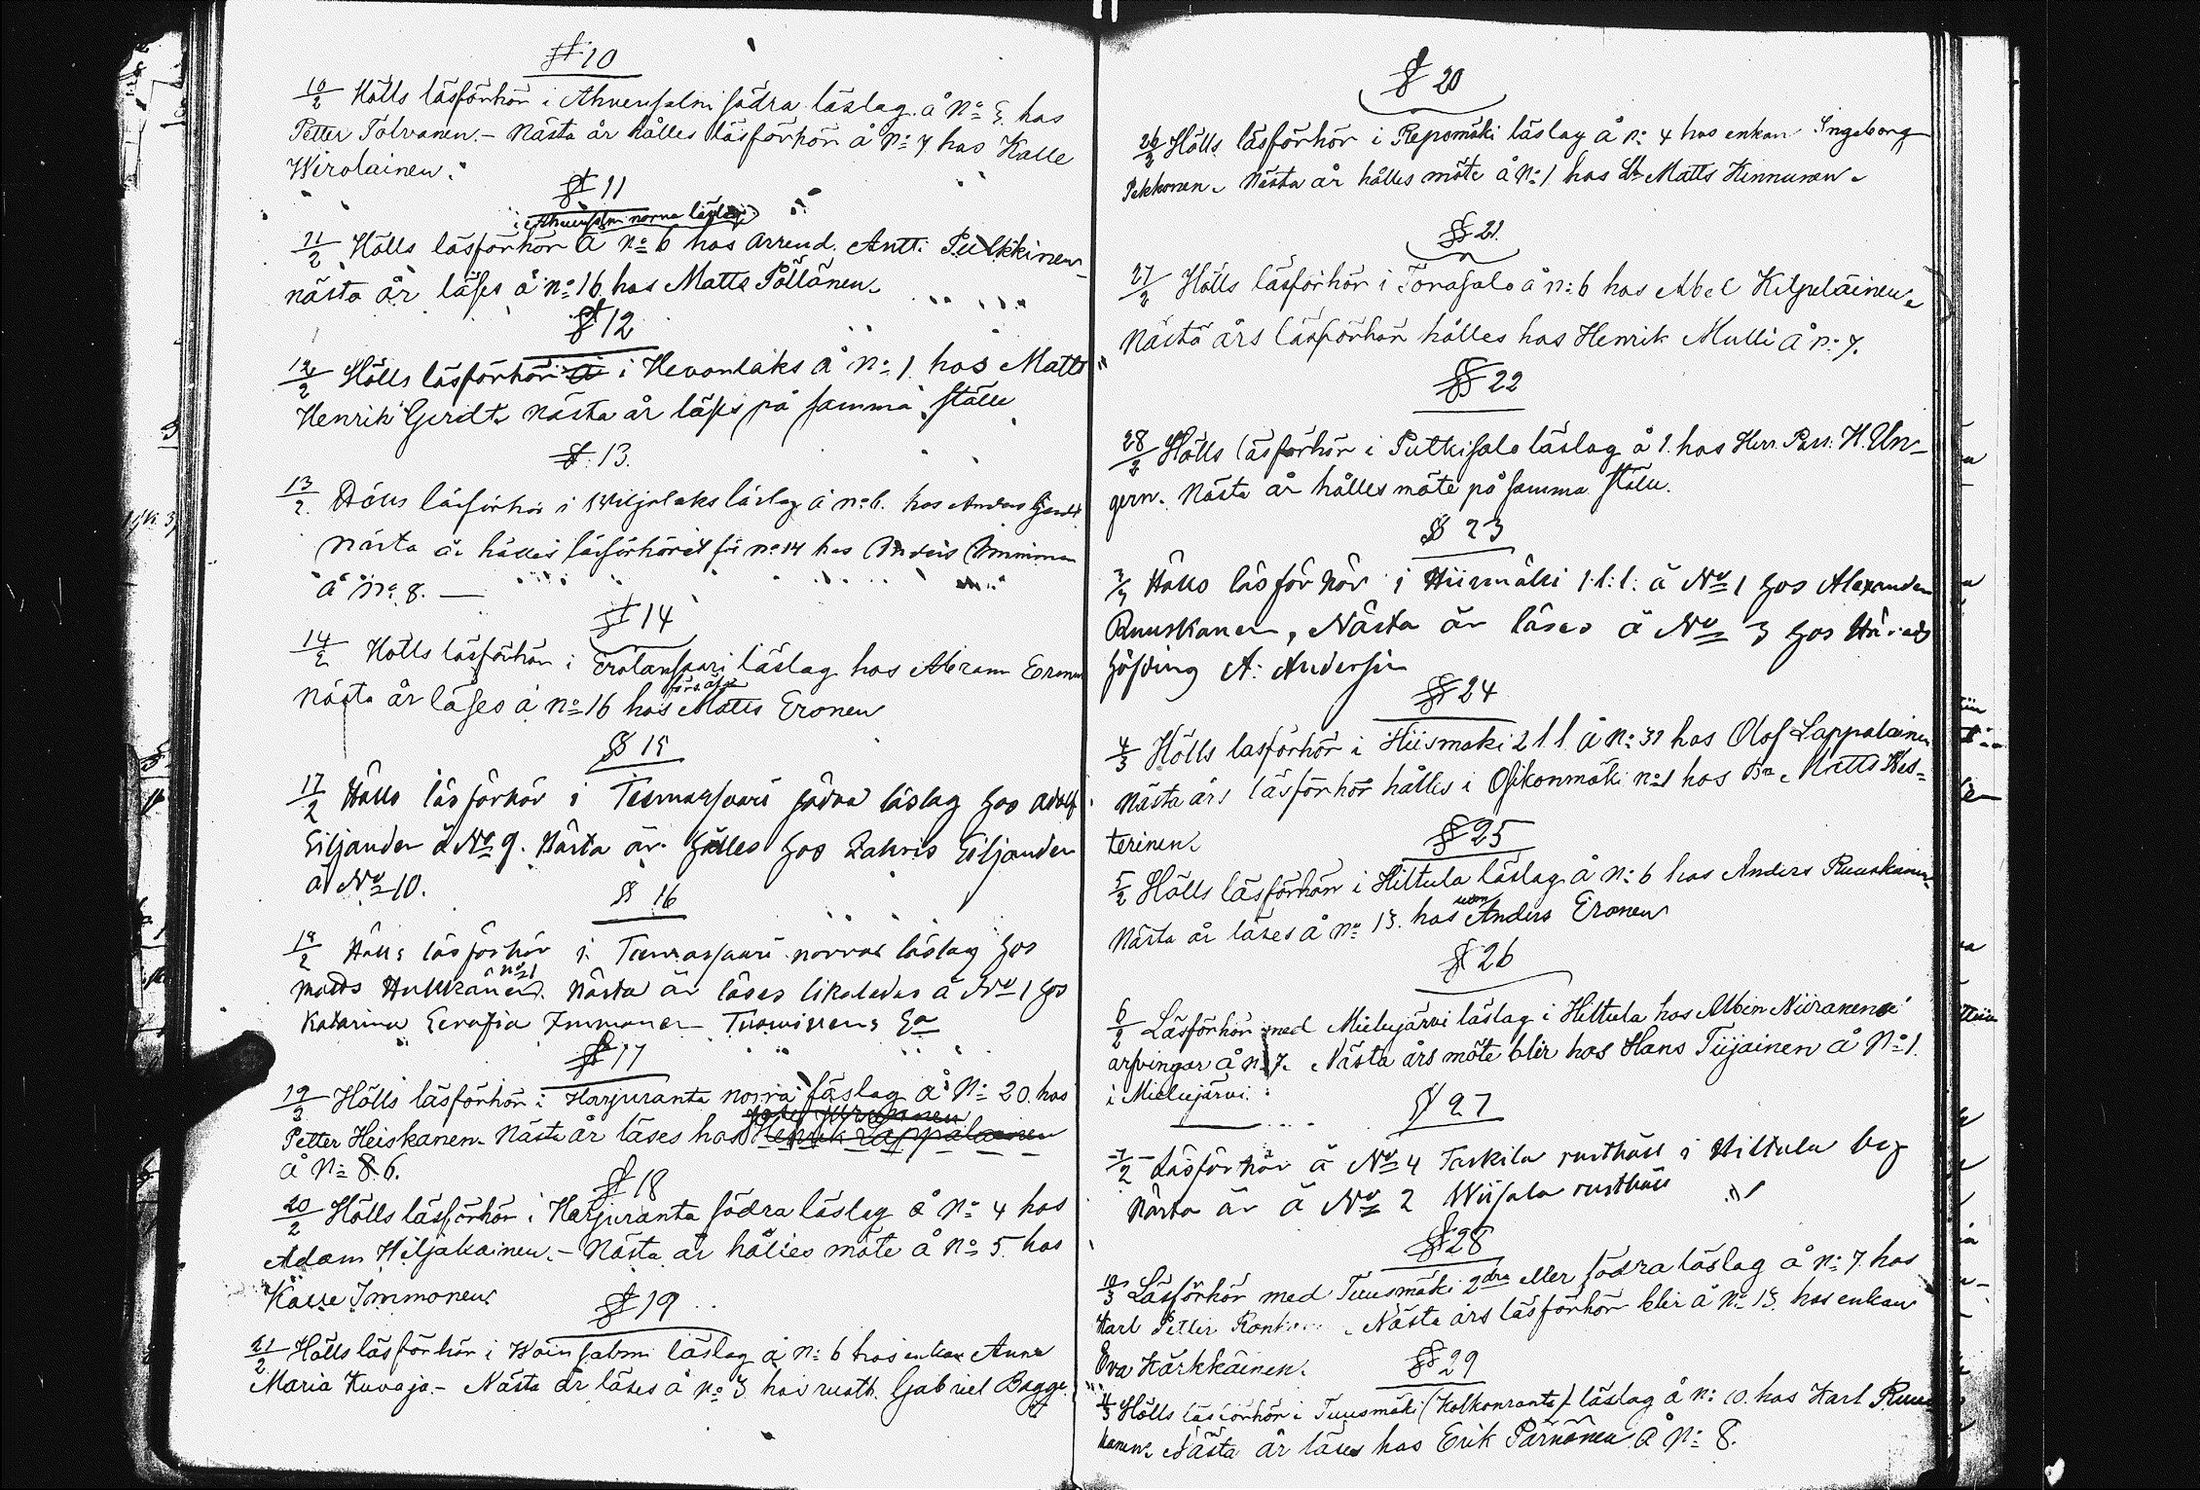 § 10
10/2 Hölls läsförhör i Ahvensalmi södra läslag å No 5 hos
Petter Tolvanen. – Nästa år hålles läsförhör å No 7 hos Kalle
Wirolainen.
§ 11
i Ahvensalmi norra läslag
11/2 Hölls läsförhör å No 6 hos arrend. Antti Pulkkinen
nästa år läses å No 16 hos Matts Pöllänen.
§ 12
12/2 Hölls läsförhör å i Hevonlaks å No 1 hos Matts
Henrik Gerdt. Nästa år läses på samma ställe
§ 13.
13/2 Hölls läsförhör i Wiljolaks läslag å No 6. hos Anders Gerdt
Nästa år hålles läsförhöret för No 14 hos Anders Immonen
å No 8. —
§ 14
14/2 Hölls läsförhör i Erolanspari läslag hos Abram Eronen
Nästa år läses å No 16 hos Matts Eronen
§ 15
17/2 Hölls läsförhör i Teemassaari södra läslag hos Adolf
Siljander å No 9. Nästa år hålles hos Zakris Siljander
å No 10.
§ 16
18/2 Hölls läsförhör i Teemassaari norra läslag hos
å No 1
Matts Hukkanen. Nästa år läses likaledes å No 1 hos
Katarina Serafia Immonen
§ 17
19/2 Hölls läsförhör i Harjuranta norra läslag å No 20 hos
Petter Heiskanen. Nästa år läses hos Henrik Lappalainen
å No 8. 6.
§ 18
20/2 Hölls läsförhör i Harjuranta södra läslag å No 4 hos
Adam Hiljakainen. – Nästa år hålles möte å No 5 hos
Kalle Immonen.
§ 19
21/2 Hölls läsförhör i Woinsalmi läslag å No 6 hos enkan Anna
Maria Kuvaja. – Nästa år läses å No 3 hos rusth. Gabriel Bagge.
§ 20
26/2 Hölls läsförhör i Repomäki läslag å No 4 hos enkan Ingeborg
Pekkonen. Nästa år hålles möte å No 1 hos Matts Hinnunen.
§ 21.
27/2 Hölls läsförhör i Torasalo å No 6 hos Abel Kilpeläinen.
Nästa års läsförhör hålles hos Henrik Mulli å No 7.
§ 22
28/2 Hölls läsförhör i Putkisalo läslag å 1. hos Herr Pass. H. Un-
gern. Nästa år hålles möte på samma ställe.
§ 23
3/3 Hölls läsförhör i Hiismäki 1. l. l. å No 1 hos Alexander
Ruuskanen, Nästa år läses å No 3 hos Härads
höfding A. Andersin
§ 24
4/3 Hölls läsförhör i Hiismäki 2 l l å No 31 hos Olof Lappalainen
Nästa års läsförhör hålles i Osikonmäki No 1 hos Bn. Matts Kes-
terinen.
§ 25
5/2 Hölls läsförhör i Hiltula läslag å No 6 hos Anders Ruuskanen.
Nästa år läses å No 13. hos Anders Eronen
§ 26
6/2 Läsförhör med Mielujärvi läslag i Hiltula hos Albin Niiranens
arfvingar å No 7. Nästa års möte blir hos Hans Tiijainen å No 1.
i Mielujärvi.
§ 27
7/2 Läsförhör å No 4 Taskila rusthåll i Hiltula by
Nästa år å No 2 Wiisala rusthåll
§ 28
10/3 Läsförhör med Tuusmäki 2dra eller södra läslag å No 7. hos
Karl Petter. Nästa års läsförhör blir å No 15. hos enkan
Eva Kärkkäinen.
§ 29
11/3 Hölls läsförhör i Tuusmäki (Kolkonranta) läslag å No 10. hos Karl Ruus-
kanen. Nästa år läses hos Erik Pärnänen å No 8.